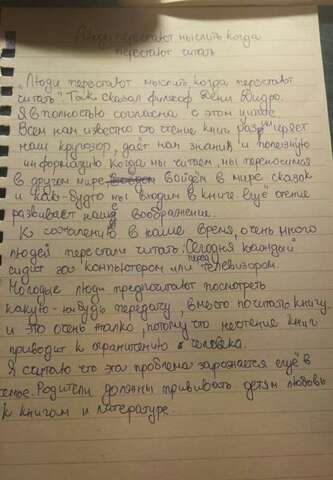 Люди перестают мыслить когда
перестают читать
„Люди перестают мыслить, когда перестают
читать". Так сказал философ Дени Дидро.
Я полностью согласна с этом
Всем нам известно что чтение книг расширяет
наш кругозор, даёт нам знания и полезную
информацию. Когда мы читаем, мы переносимся
в другом мире войдём в мире сказок
и как-будто мы входим в книге. ещё чтение
развивает наше воображение.
К сожалению в наше время, очень много
людей перестали читать. Сегодня каждый
сидит за компьютером или перед телевизором.
Молодые люди предпочитают посмотреть
какую-нибудь передачу, вместо почитать книгу
и это очень жалко, потому что нечтение книг
приводит к ограничению человека.
Я считаю что эта проблема зарождается ещё в
семье. Родители должны прививать детям любовь
к книгам и литературе.